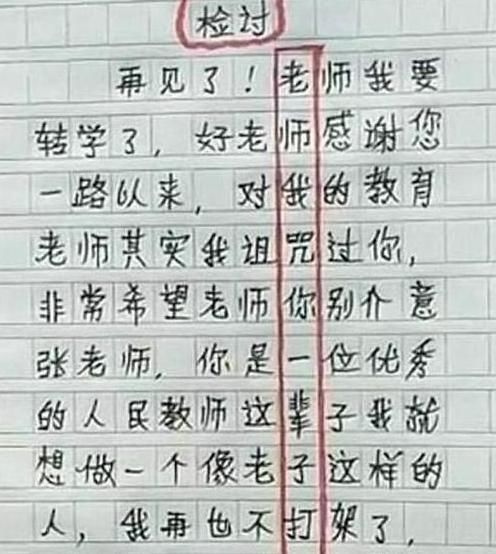 检讨
再见了！老师我要
转学了，好老师感谢您
一路以来，对我的教育
老师其实我诅咒过你，
非常希望老师你别介意
张老师，你是一位优秀
的人民教师这辈子我就
想做一个像老子这样的
人，我再也不打架了，